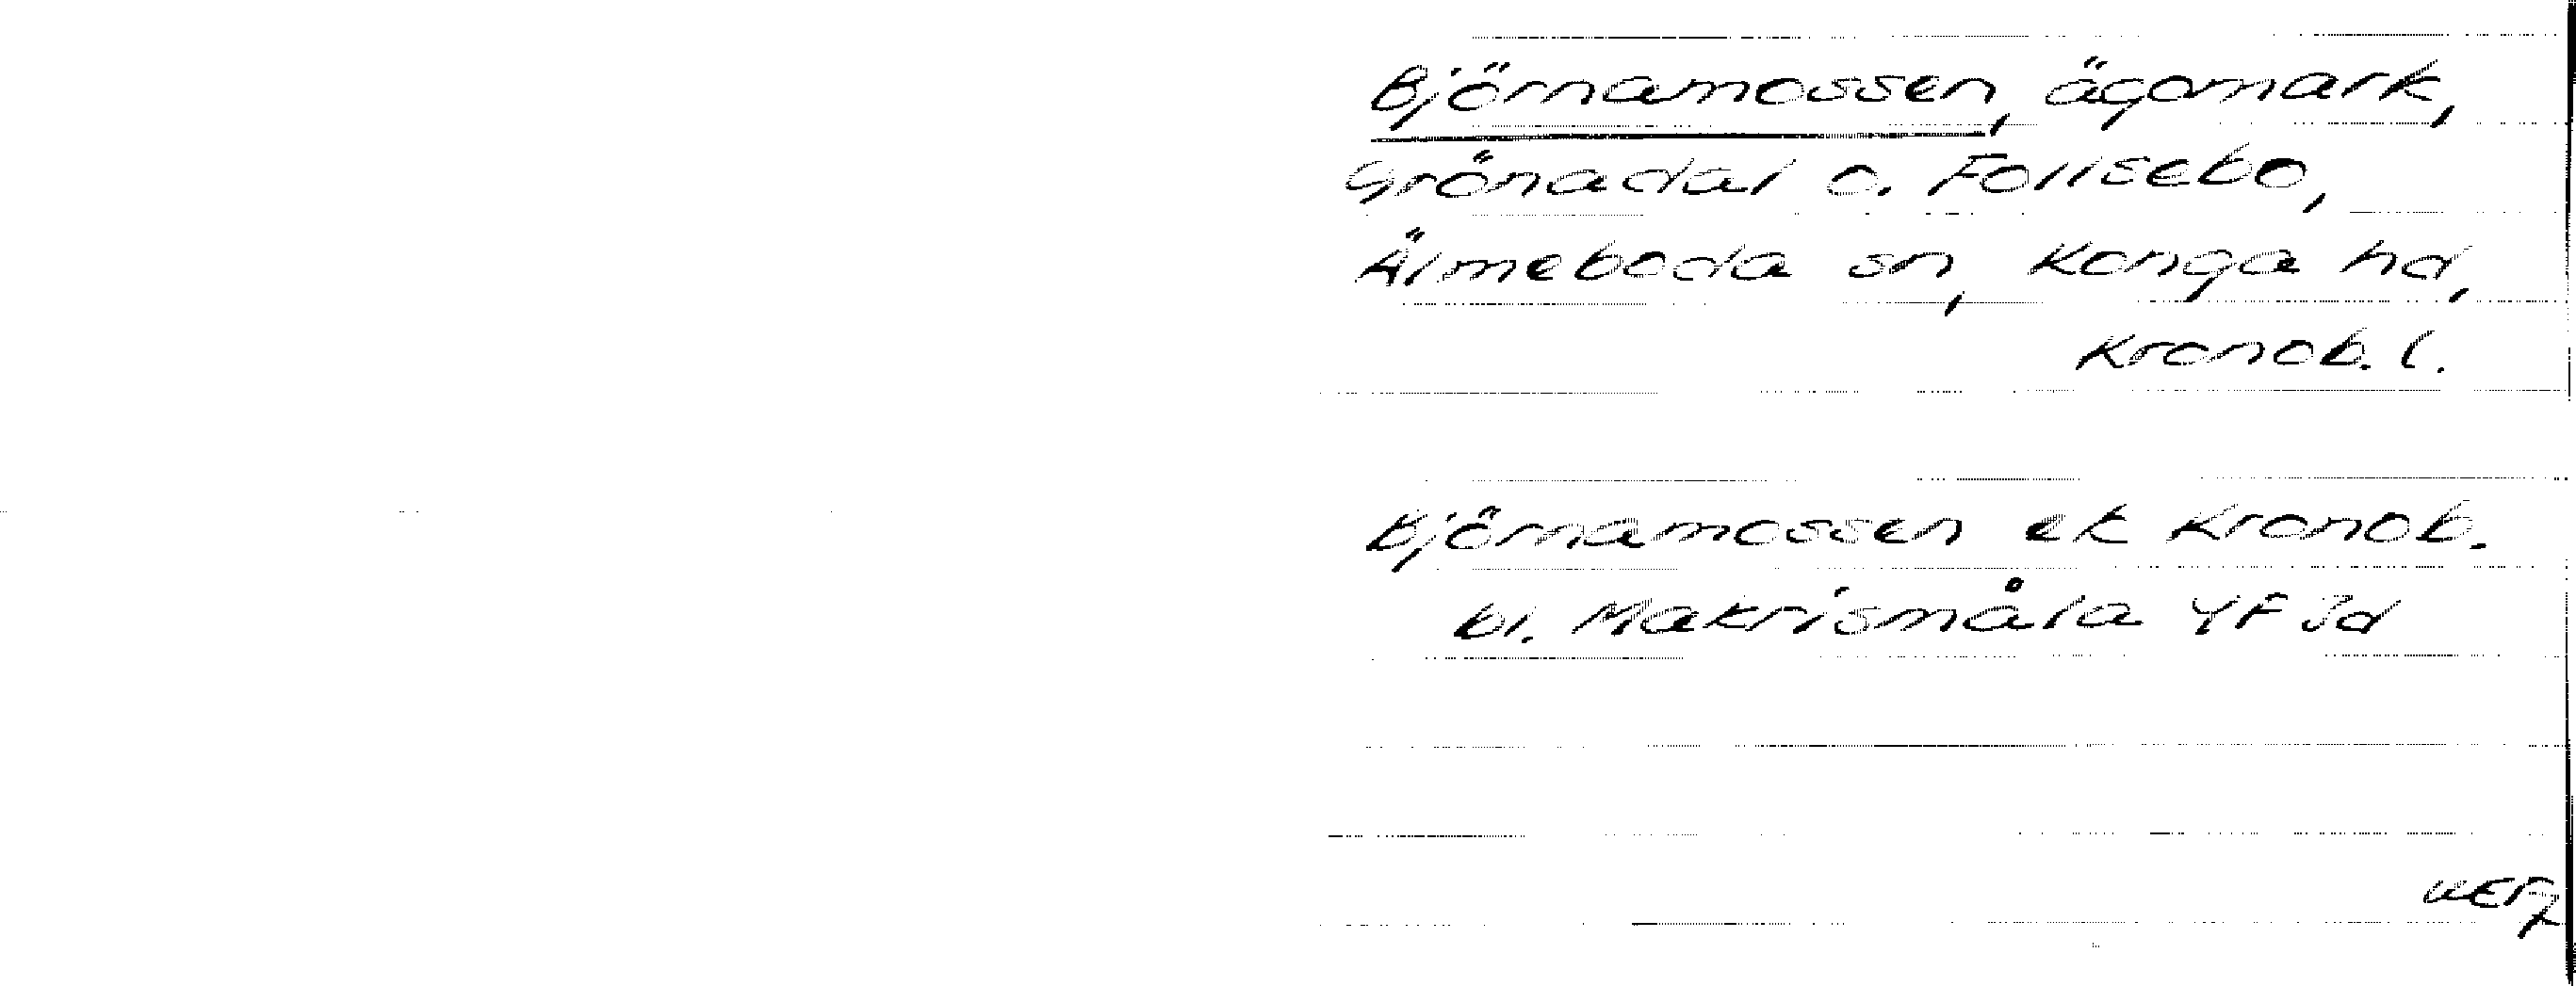 Björnamossen, ägomark,
Grönadal o. Follsebo,
Älmeboda sn, Konga hd,
Kronob. l.
Björnamossen ek Kronob.
bl. Makrismåla 4F Jd